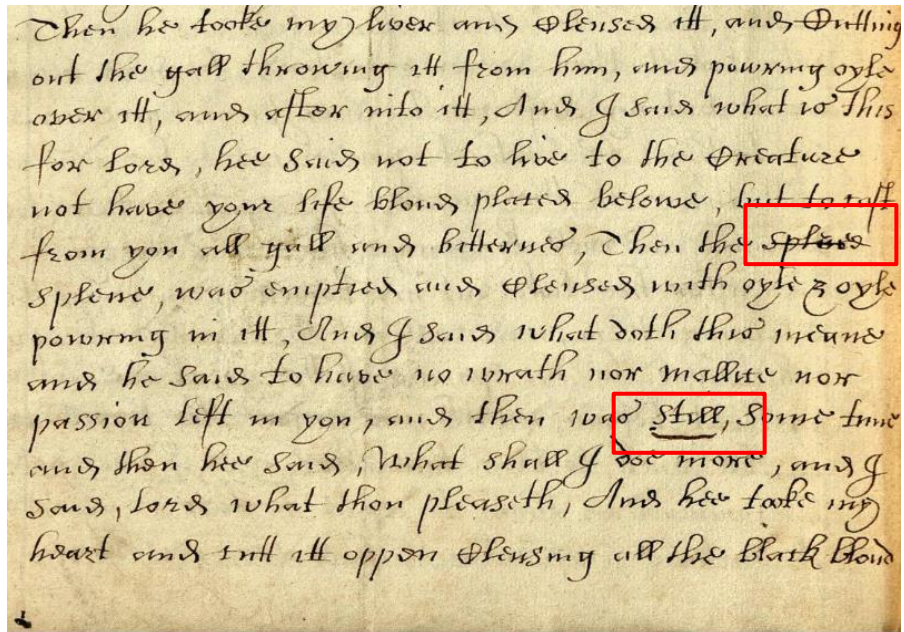 Then he tooke my liver and Clensed itt, and Cutting
out the gall throwing itt from him, and powring oyle
over itt, and after into itt, And I said what is this
for Lord, hee Said not to live to the Creature
not have your life bloud placed belowe, but to cast
from you all gall and bitternes, Then the Splene
Splene, was emptied and Clensed with oyle & oyle
powring in itt, And I Said what doth this meane
and he Said to have no wrath nor mallice nor
passion left in you, and then was still, Some time
and then hee Said, What shall I doe more, and I
Said, Lord what thou pleaseth, And hee tooke my
heart and cutt itt oppen Clensing all the black bloud